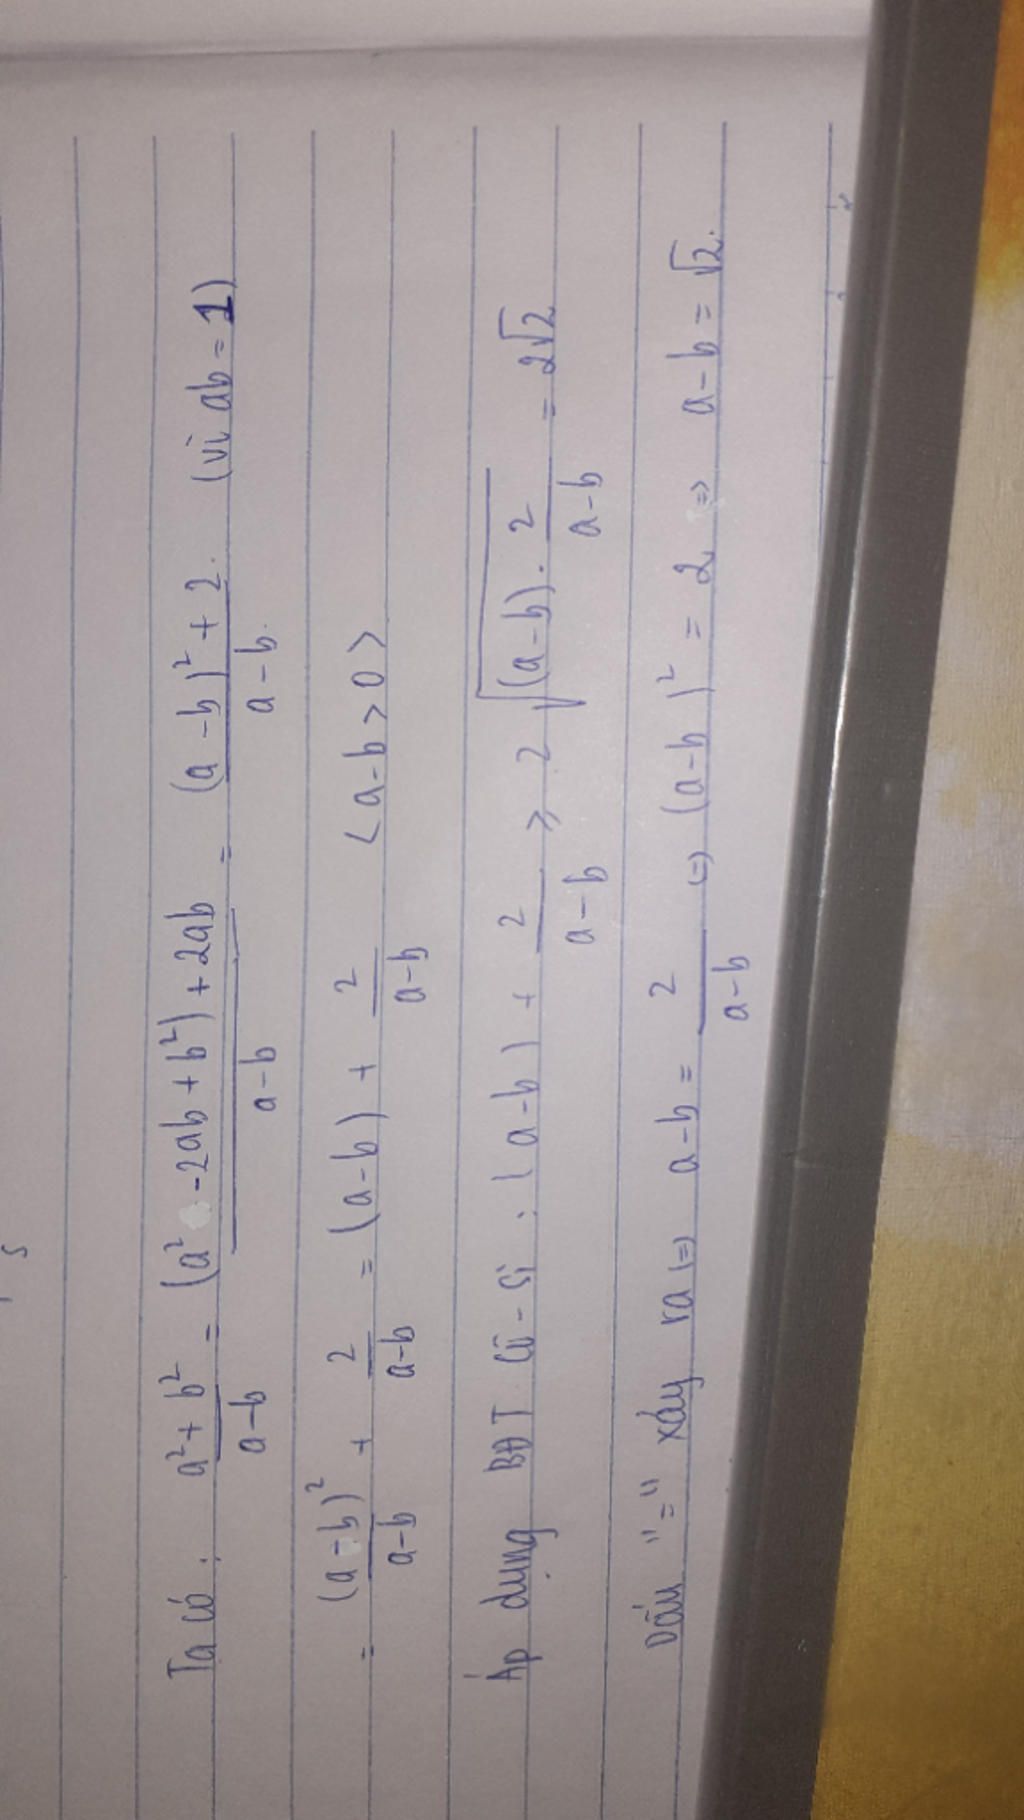 Ta có: a²+b²/a-b = (a²-2ab+b²)+2ab/a-b = (a-b)²+2/a-b. (vì ab=1)
= (a-b)²/a-b + 2/a-b = (a-b) + 2/a-b <a-b>0>
Áp dụng BĐT Cô-si: (a-b) + 2/a-b ≥ 2√(a-b).2/a-b = 2√2
Dấu "=" xảy ra (=) a-b = 2/a-b (=) (a-b)² = 2 => a-b = √2.